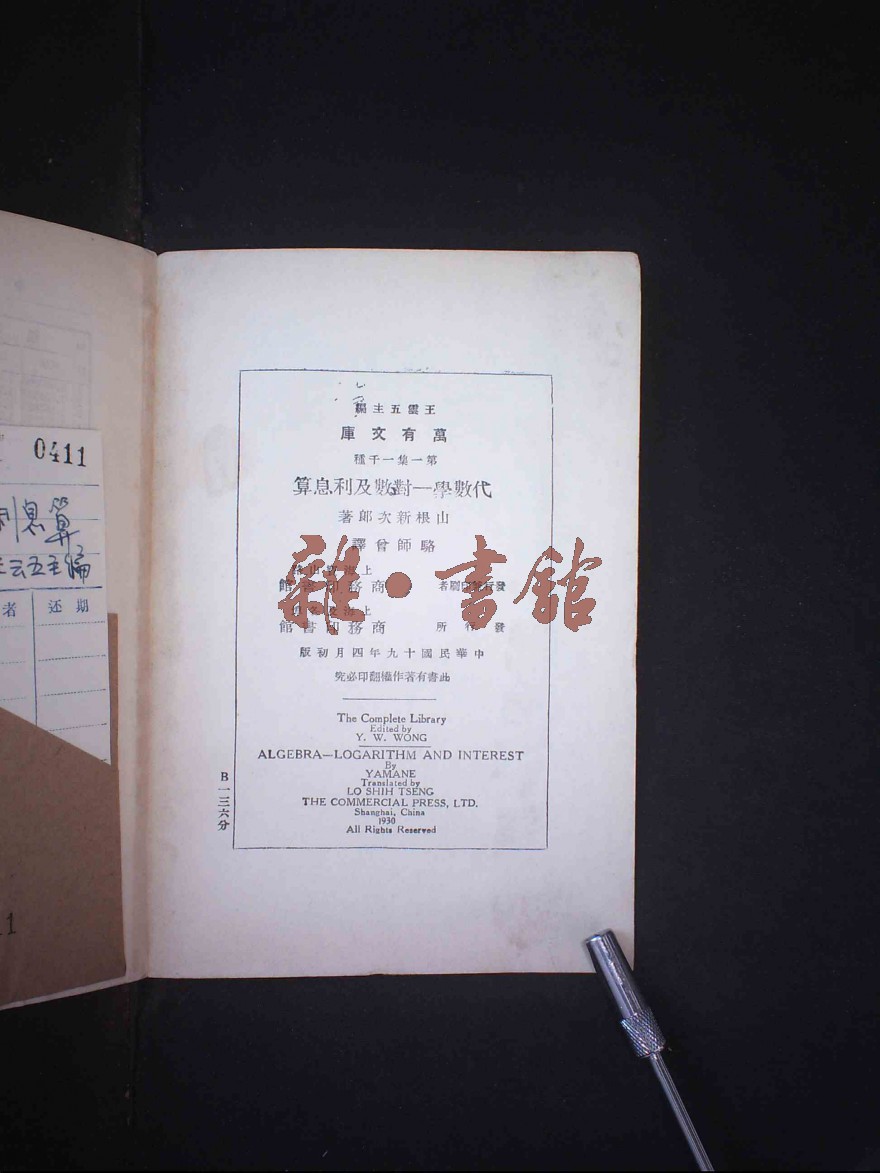 0411
利息算
王云五主编
者 还期
11
王雲五主編
萬有文庫
第一集一千種
代數學—對數及利息算
山根新次郎著
駱師曾譯
上海寶山路
發行兼印刷者 商務印書館
上海及各埠
發行所 商務印書館
中華民國十九年四月初版
此書有著作權翻印必究
The Complete Library
Edited by
Y. W. WONG
ALGEBRA—LOGARITHM AND INTEREST
By
YAMANE
Translated by
LO SHIH TSENG
THE COMMERCIAL PRESS, LTD.
Shanghai, China
1930
All Rights Reserved
B一三六分
雜·書館